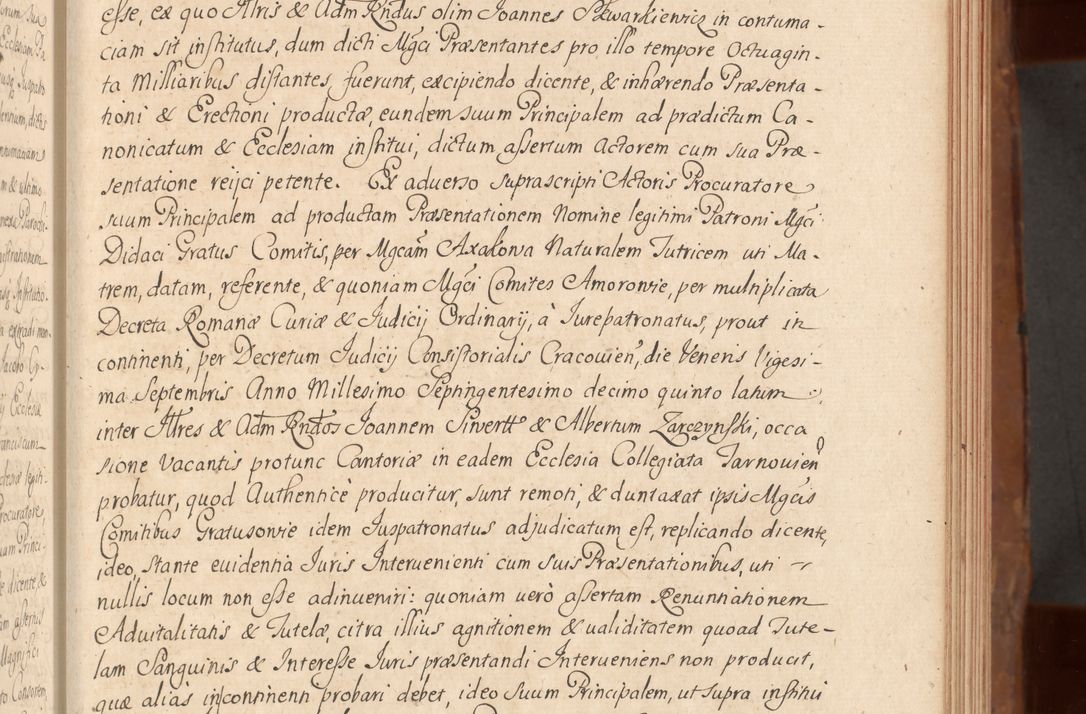 esse, ex quo Illris & Adm Rndus olim Joannes Skwarkiewicz in contuma-
ciam sit institutus, dum dicti Mgci Præsentantes pro illo tempore octuagin-
ta Milliaribus distantes fuerunt, excipiendo dicente, & inhærendo Præsenta-
tioni & Erectioni productæ, eundem suum Principalem ad prædictum Ca-
nonicatum & Ecclesiam institui, dictum assertum Actorem cum sua Præ-
sentatione reijci petente. Ex adverso suprascripti Actoris Procuratore
suum Principalem ad productam Præsentationem Nomine legitimi Patroni Mgci
Didaci Gratus Comitis, per Mgcam Axakowa Naturalem Tutricem uti Ma-
trem, datam, referente, & quoniam Mgci Comites Amorowie, per multiplicata
Decreta Romanæ Curiæ & Judicij Ordinarij, à Jurepatronatus, prout in
continenti, per Decretum Judicij Consistorialis Cracovien, die Veneris Vigesi-
ma Septembris Anno Millesimo Septingentesimo decimo quinto latum
inter Illres & Adm Rndos Joannem Siwertt & Albertum Zarczynski, occa
sione vacantis protunc Cantoriæ in eadem Ecclesia Collegiata Tarnovien
probatur, quod Authenticè producitur, sunt remoti, & duntaxat ipsis Mgcis
Comitibus Gratusowie idem Juspatronatus adjudicatum est, replicando dicente,
ideo, stante evidentia Juris Intervenienti cum suis Præsentationibus, uti
nullis locum non esse adinveniri: quoniam verò assertam Renuntiationem
Advitalitatis & Tutelæ, citra illius agnitionem & validitatem quoad Tute-
lam Sanguinis & Interesse Juris præsentandi Interveniens non producit,
quæ alias in continenti probari debet, ideo suum Principalem, ut supra institui